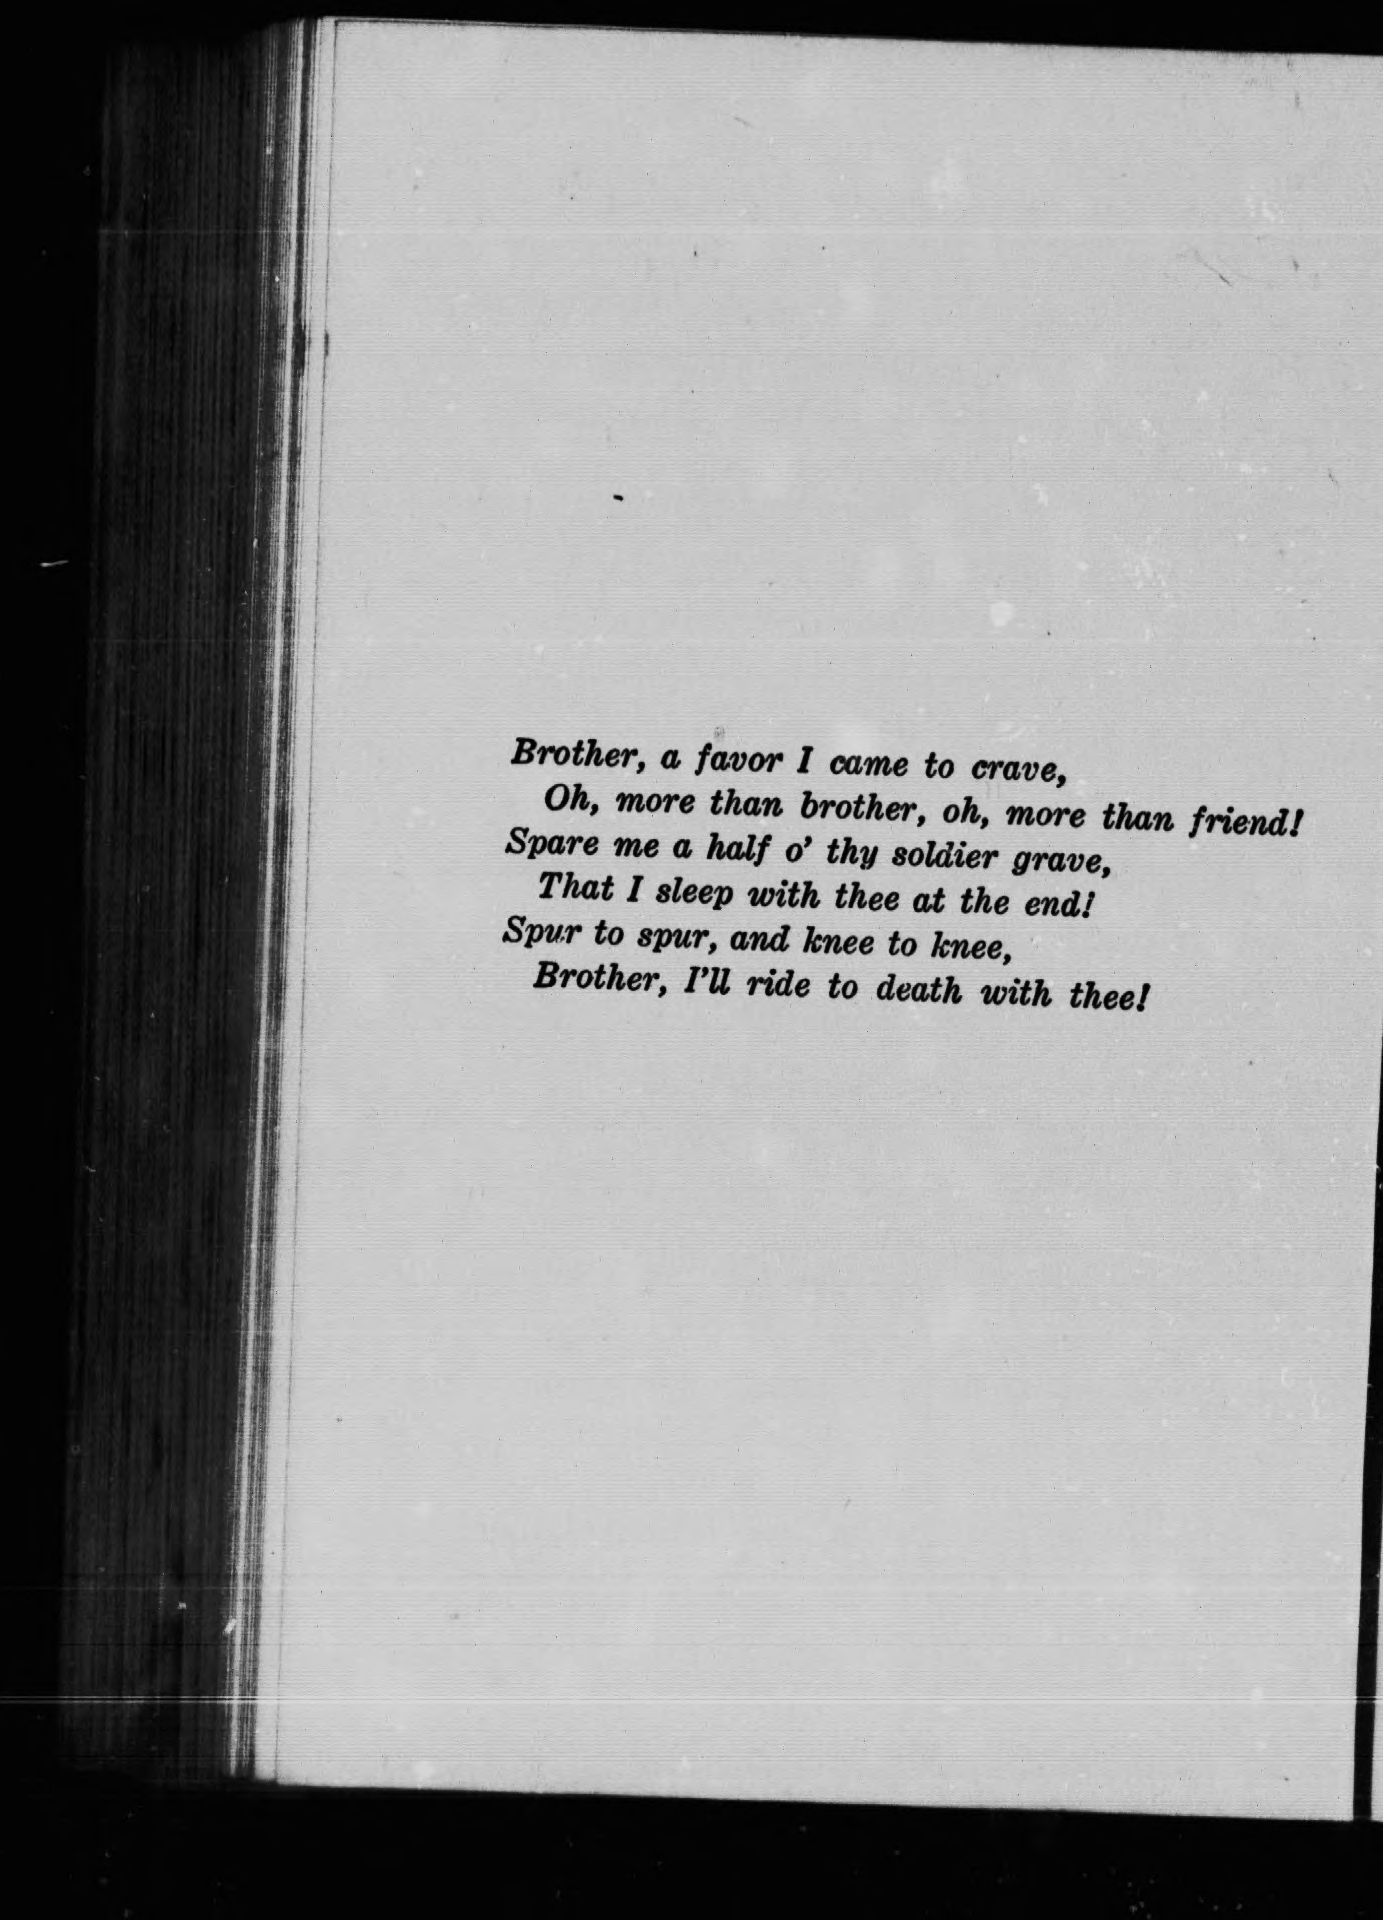 Brother, a favor I came to crave,
Oh, more than brother, oh, more than friend!
Spare me a half o' thy soldier grave,
That I sleep with thee at the end!
Spur to spur, and knee to knee,
Brother, I'll ride to death with thee!